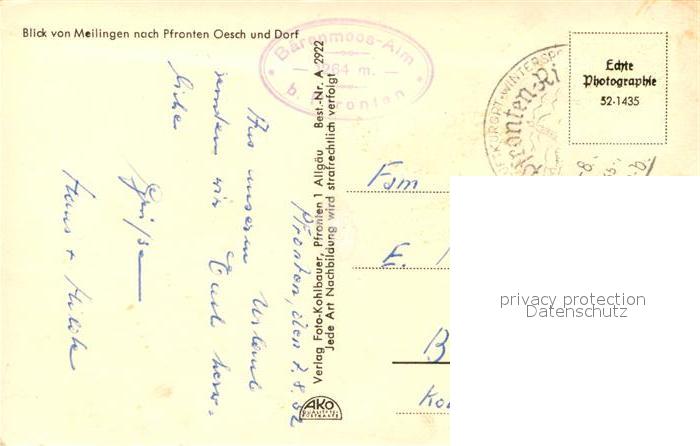 Blick von Meilingen nach Pfronten Oesch und Dorf
Bärenmoos-Alm
1264 m.
b. Pfronten
Echte
Photographie
52-1435
LUFTKURORT·WINTERSPO
Pfronten-Ri
Verlag Foto-Kohlbauer, Pfronten 1 Allgäu Best.-Nr. A 2922
Jede Art Nachbildung wird strafrechtlich verfolgt
AKO
Pfronten, den 7.8.62
Aus unserm Urlaub
senden wir Euch herzl.
liebe
Grüße
Hans +
Fam
E.
B
privacy protection
Datenschutz